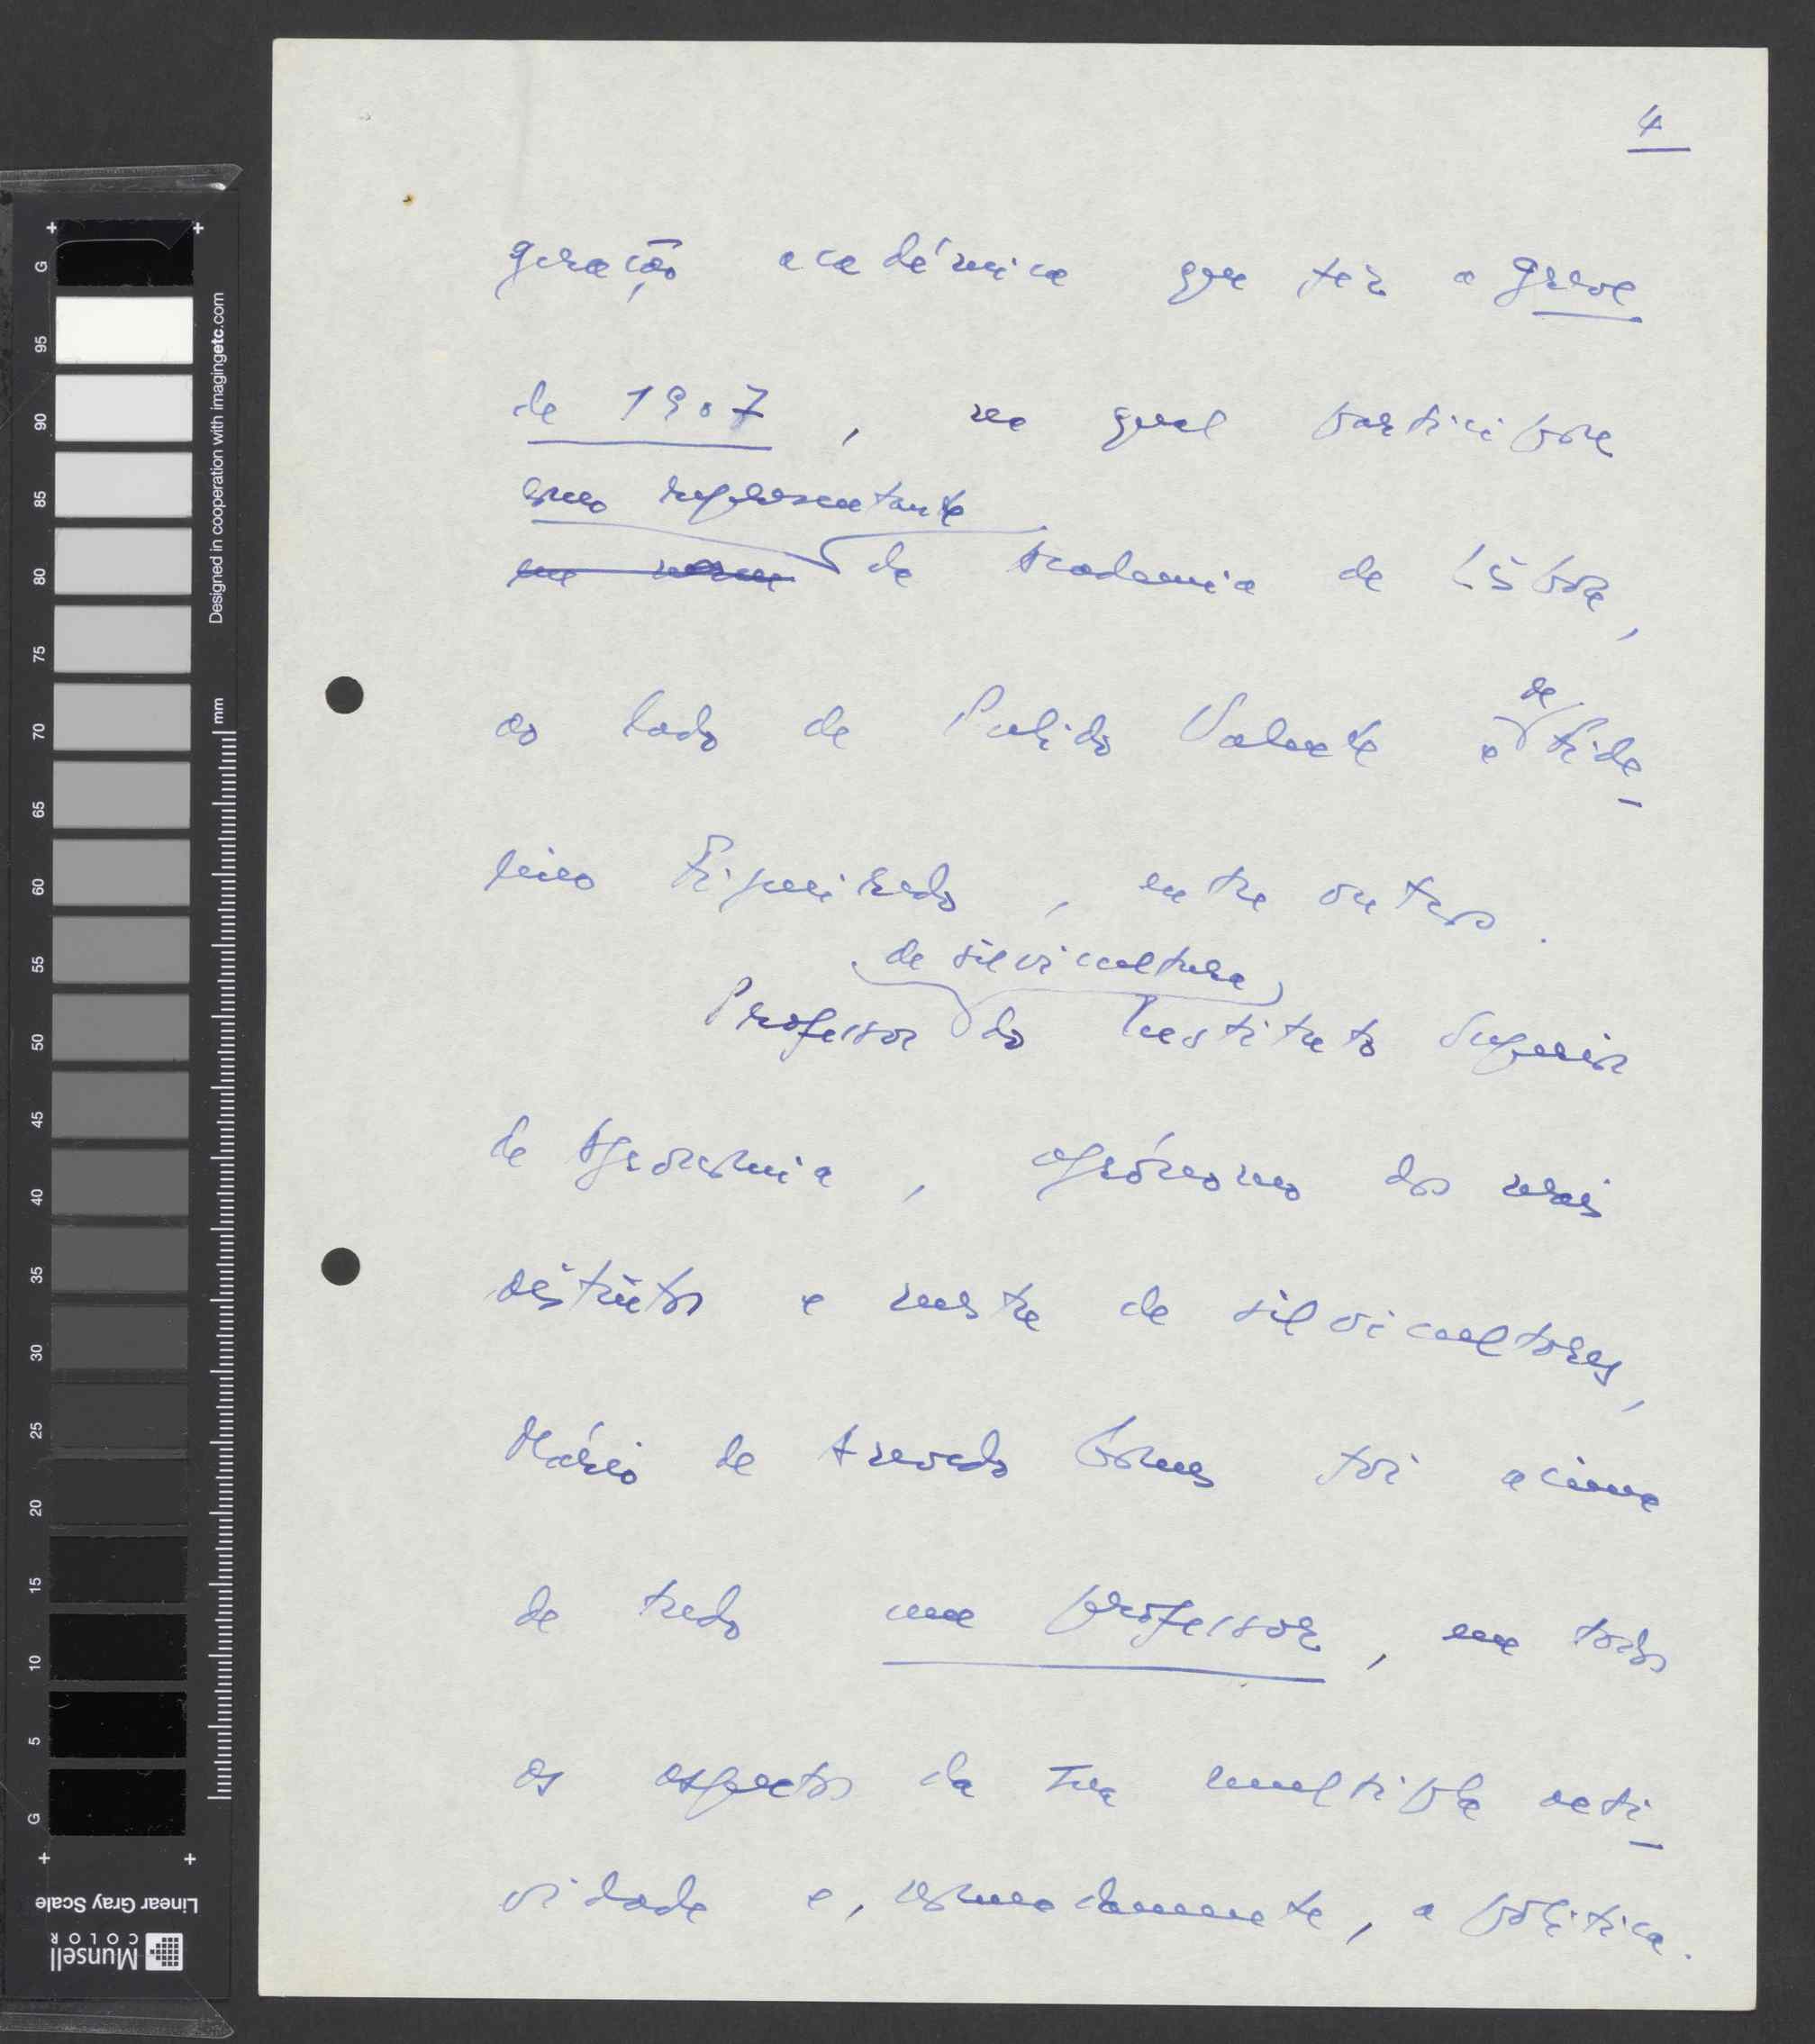 4
geração académica que fez a greve
de 1907, na qual participou
como representante
em nome da Academia de Lisboa,
ao lado de Pulido Valente e de Fide-
lino Figueiredo, entre outros.
de silvicultura
Professor do Instituto Superior
de Agronomia, agrónomo dos mais
distintos e mestre de silvicultores,
Mário de Azevedo Gomes foi acima
de tudo um professor, em todos
os aspectos da sua multipla acti-
vidade e, nomeadamente, a política.
G
95
90
85
80
75
70
65
60
55
50
45
40
35
30
25
20
15
10
5
G
mm
Designed in cooperation with imagingetc.com
Linear Gray Scale
Munsell
COLOR